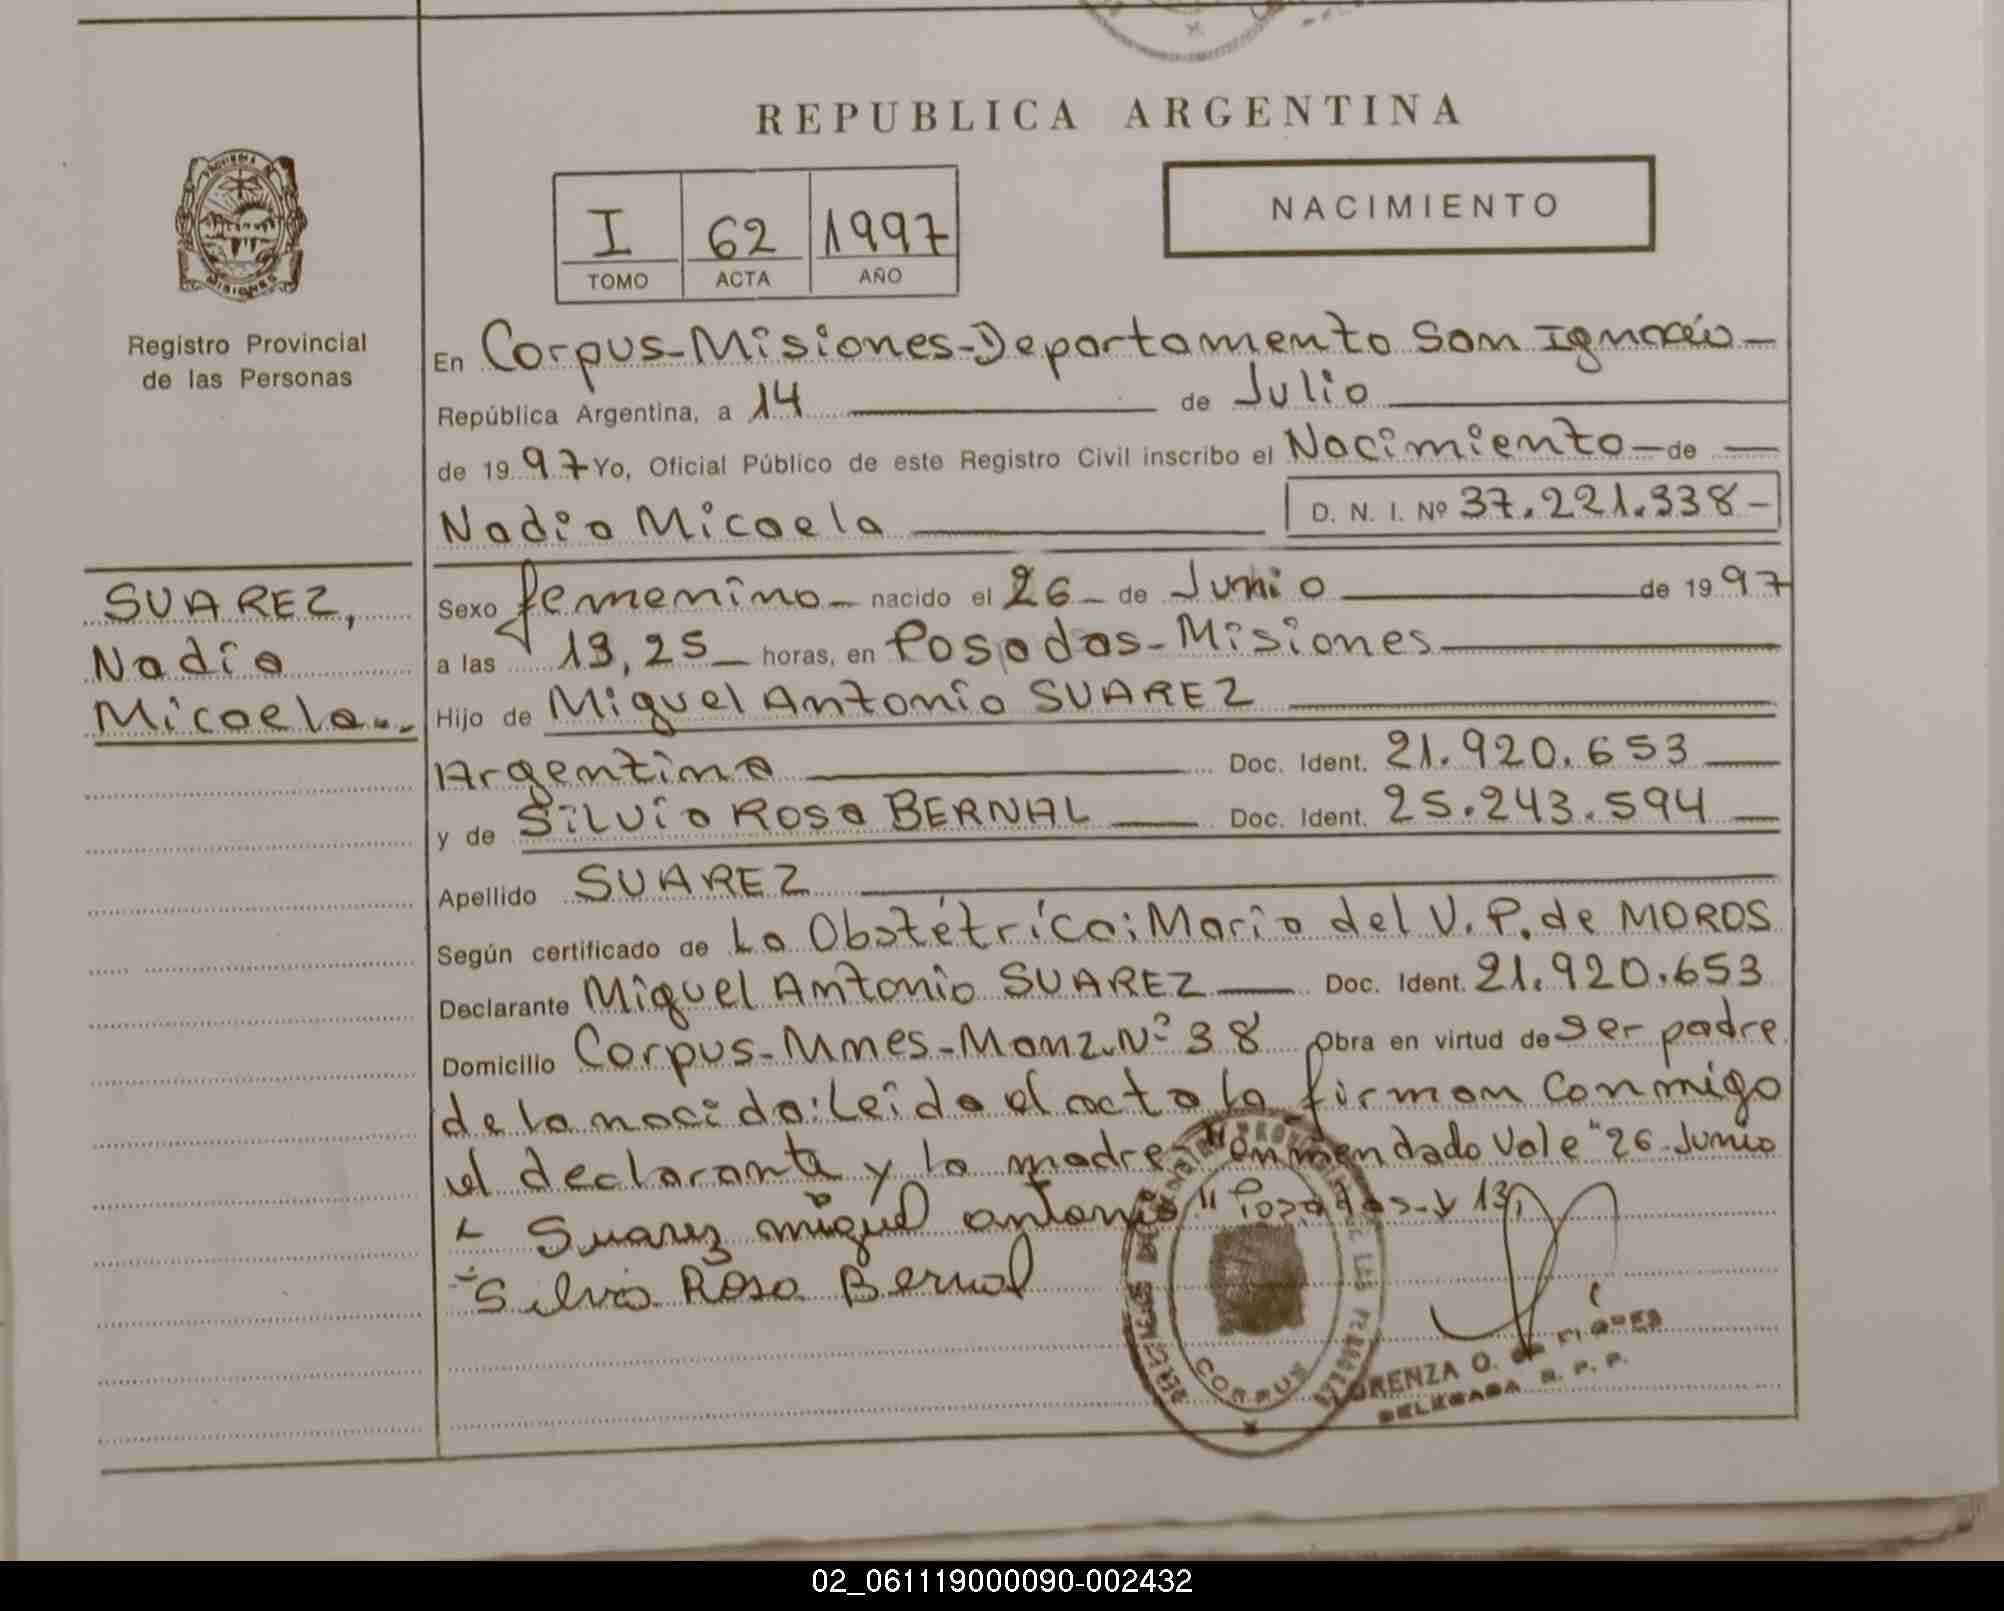 REPUBLICA ARGENTINA
I 62 1997
TOMO ACTA AÑO
NACIMIENTO
PROVINCIA DE
MISIONES
Registro Provincial
de las Personas
En Corpus-Misiones-Departamento San Ignacio-
República Argentina, a 14 de Julio
de 1997 Yo, Oficial Público de este Registro Civil inscribo el Nacimiento de
Nadia Micaela D. N. I. Nº 37.221.338-
SUAREZ,
Nadia
Micaela..
Sexo femenino- nacido el 26- de Junio de 1997
a las 13,25 horas, en Posadas-Misiones
Hijo de Miguel Antonio SUAREZ
Argentina Doc. Ident. 21.920.653
y de Silvia Rosa BERNAL Doc. Ident. 25.243.594
Apellido SUAREZ
Según certificado de La Obstétrica: Maria del V. P. de MOROS
Declarante Miguel Antonio SUAREZ Doc. Ident. 21.920.653
Domicilio Corpus-Mnes-Manz.Nº 38 Obra en virtud de ser padre
de la nacida: Leida el acta la firman conmigo
el declarante y la madre "enmendado Vale "26-Junio
Suarez miguel antonio " Posadas-y 13"
Silvia Rosa Bernal
PROVINCIAL DE LAS PERSONAS
CORPUS
LORENZA O. DE
DELEGADA R. P. P.
02_061119000090-002432